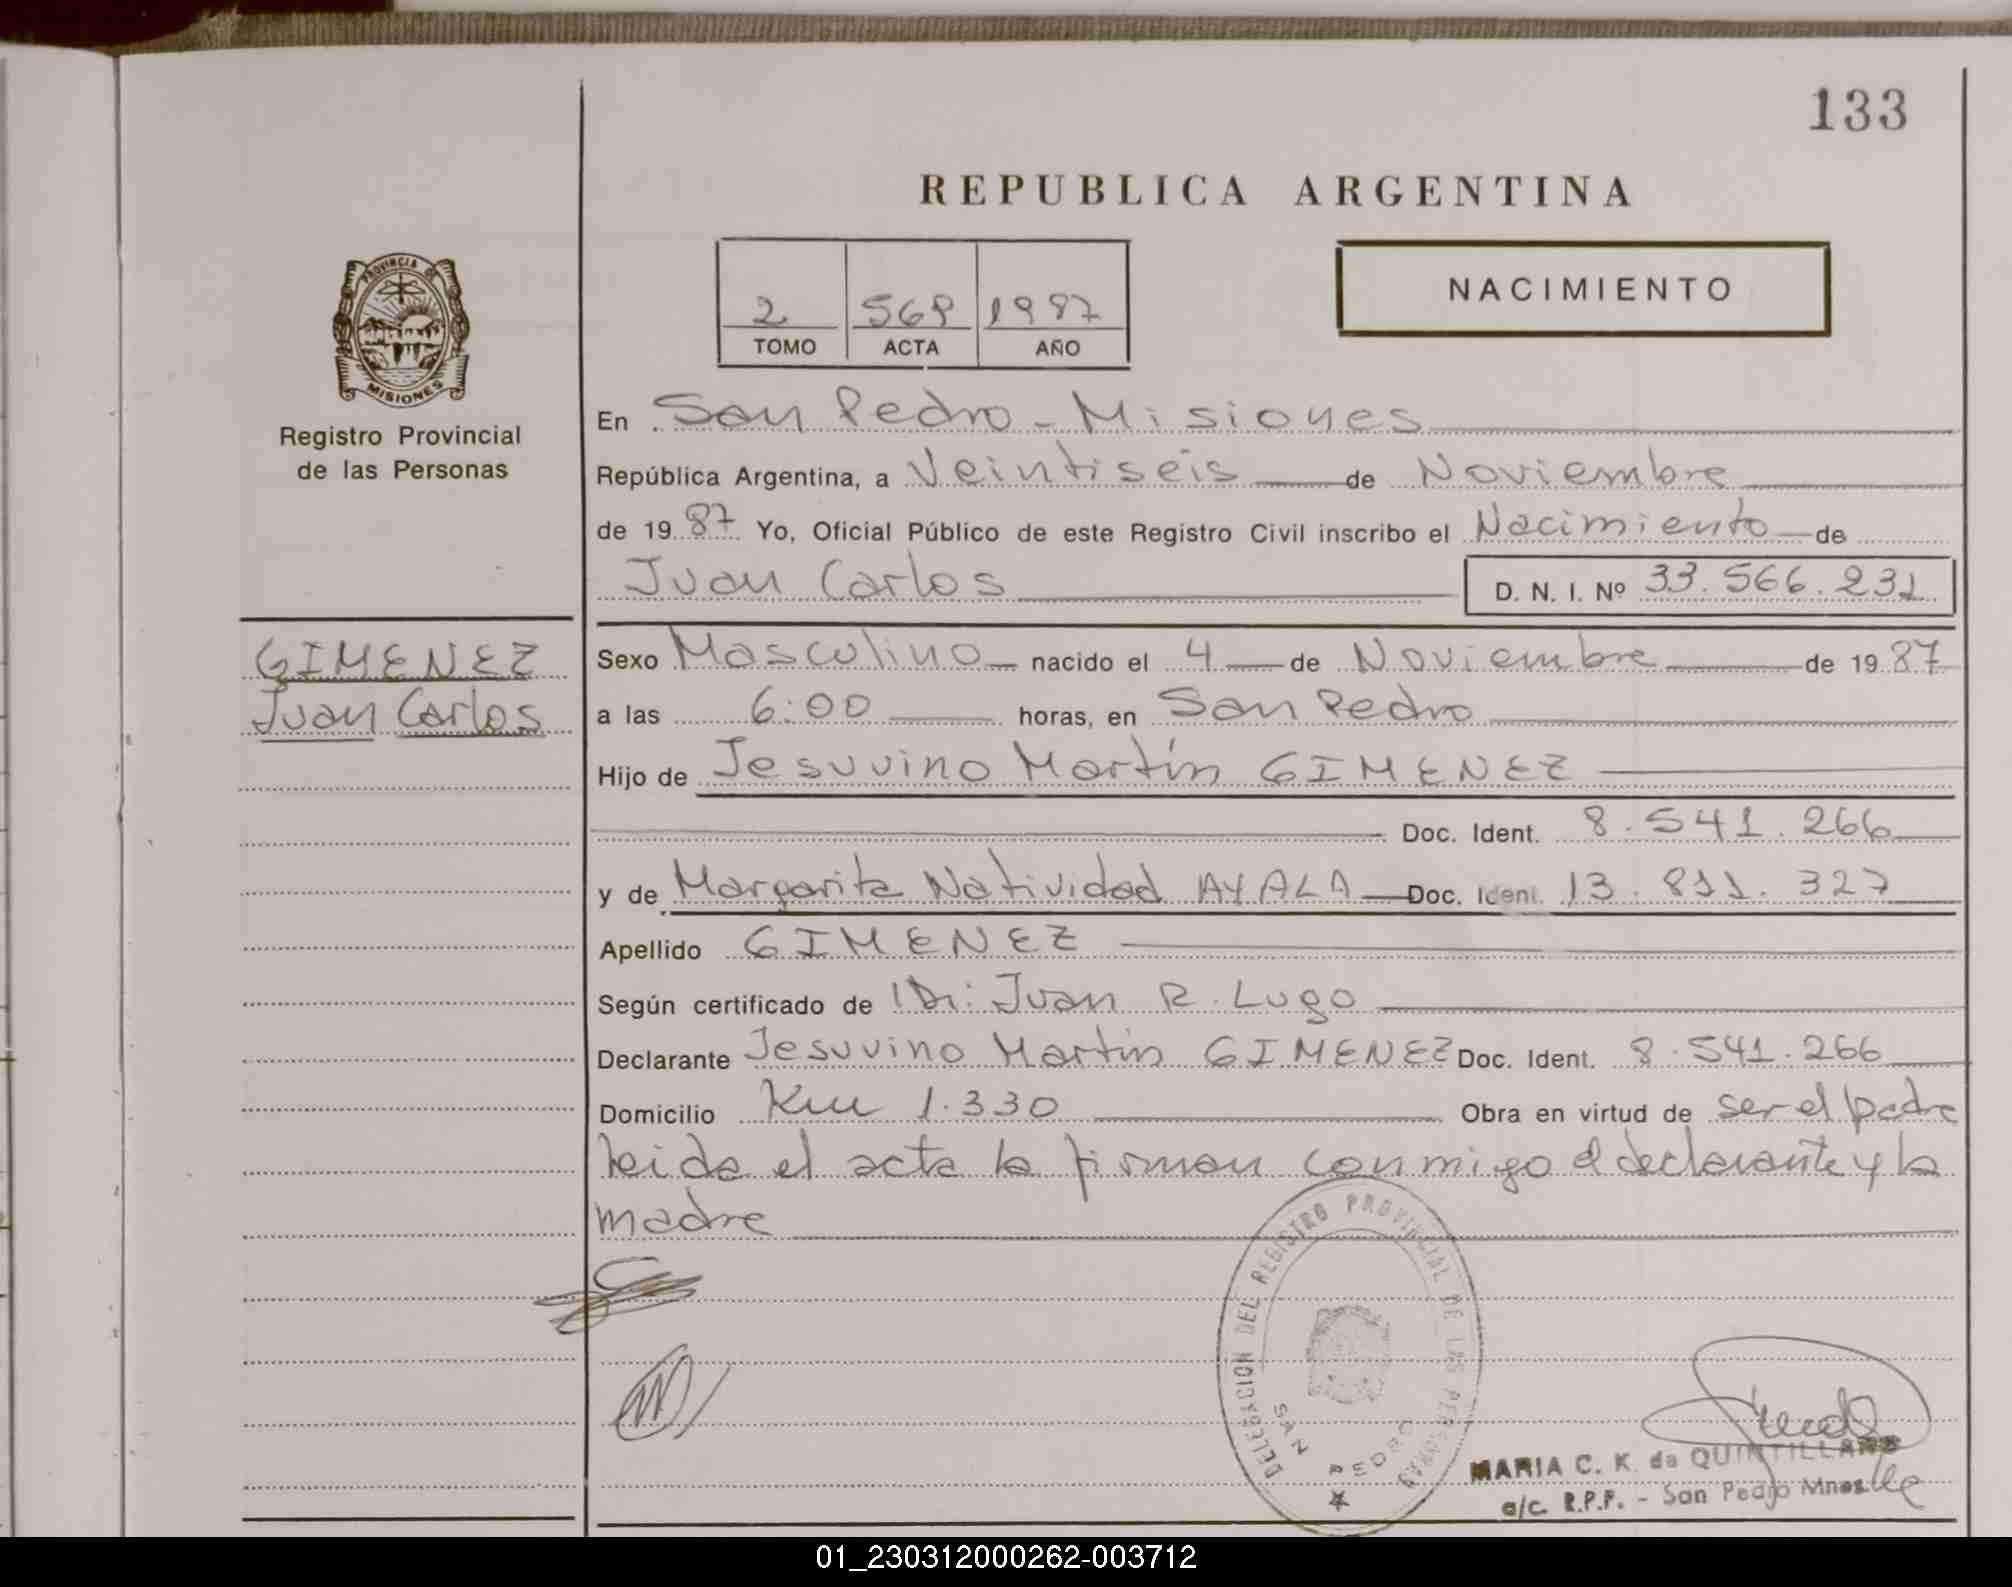 133
REPUBLICA ARGENTINA
2 568 1987
TOMO ACTA AÑO
NACIMIENTO
PROVINCIA DE
MISIONES
Registro Provincial
de las Personas
GIMENEZ
Juan Carlos
En San Pedro - Misiones
República Argentina, a Veintiseis de Noviembre
de 19 87 Yo, Oficial Público de este Registro Civil inscribo el Nacimiento de
Juan Carlos D. N. I. Nº 33.566.231
Sexo Masculino nacido el 4 de Noviembre de 19 87
a las 6:00 horas, en San Pedro
Hijo de Jesuvino Martín GIMENEZ
Doc. Ident. 8.541.266
y de Margarita Natividad AYALA Doc. Ident. 13.811.327
Apellido GIMENEZ
Según certificado de Dr: Juan R. Lugo
Declarante Jesuvino Martín GIMENEZ Doc. Ident. 8.541.266
Domicilio Km 1.330 Obra en virtud de ser el padre
leida el acta la firman conmigo el declarante y la
madre
DELEGACION DEL REGISTRO PROVINCIAL DE LAS PERSONAS
SAN PEDRO
MARIA C. K. de QUINTILLANO
a/c. R.P.P. - San Pedro Mnes.
01_230312000262-003712